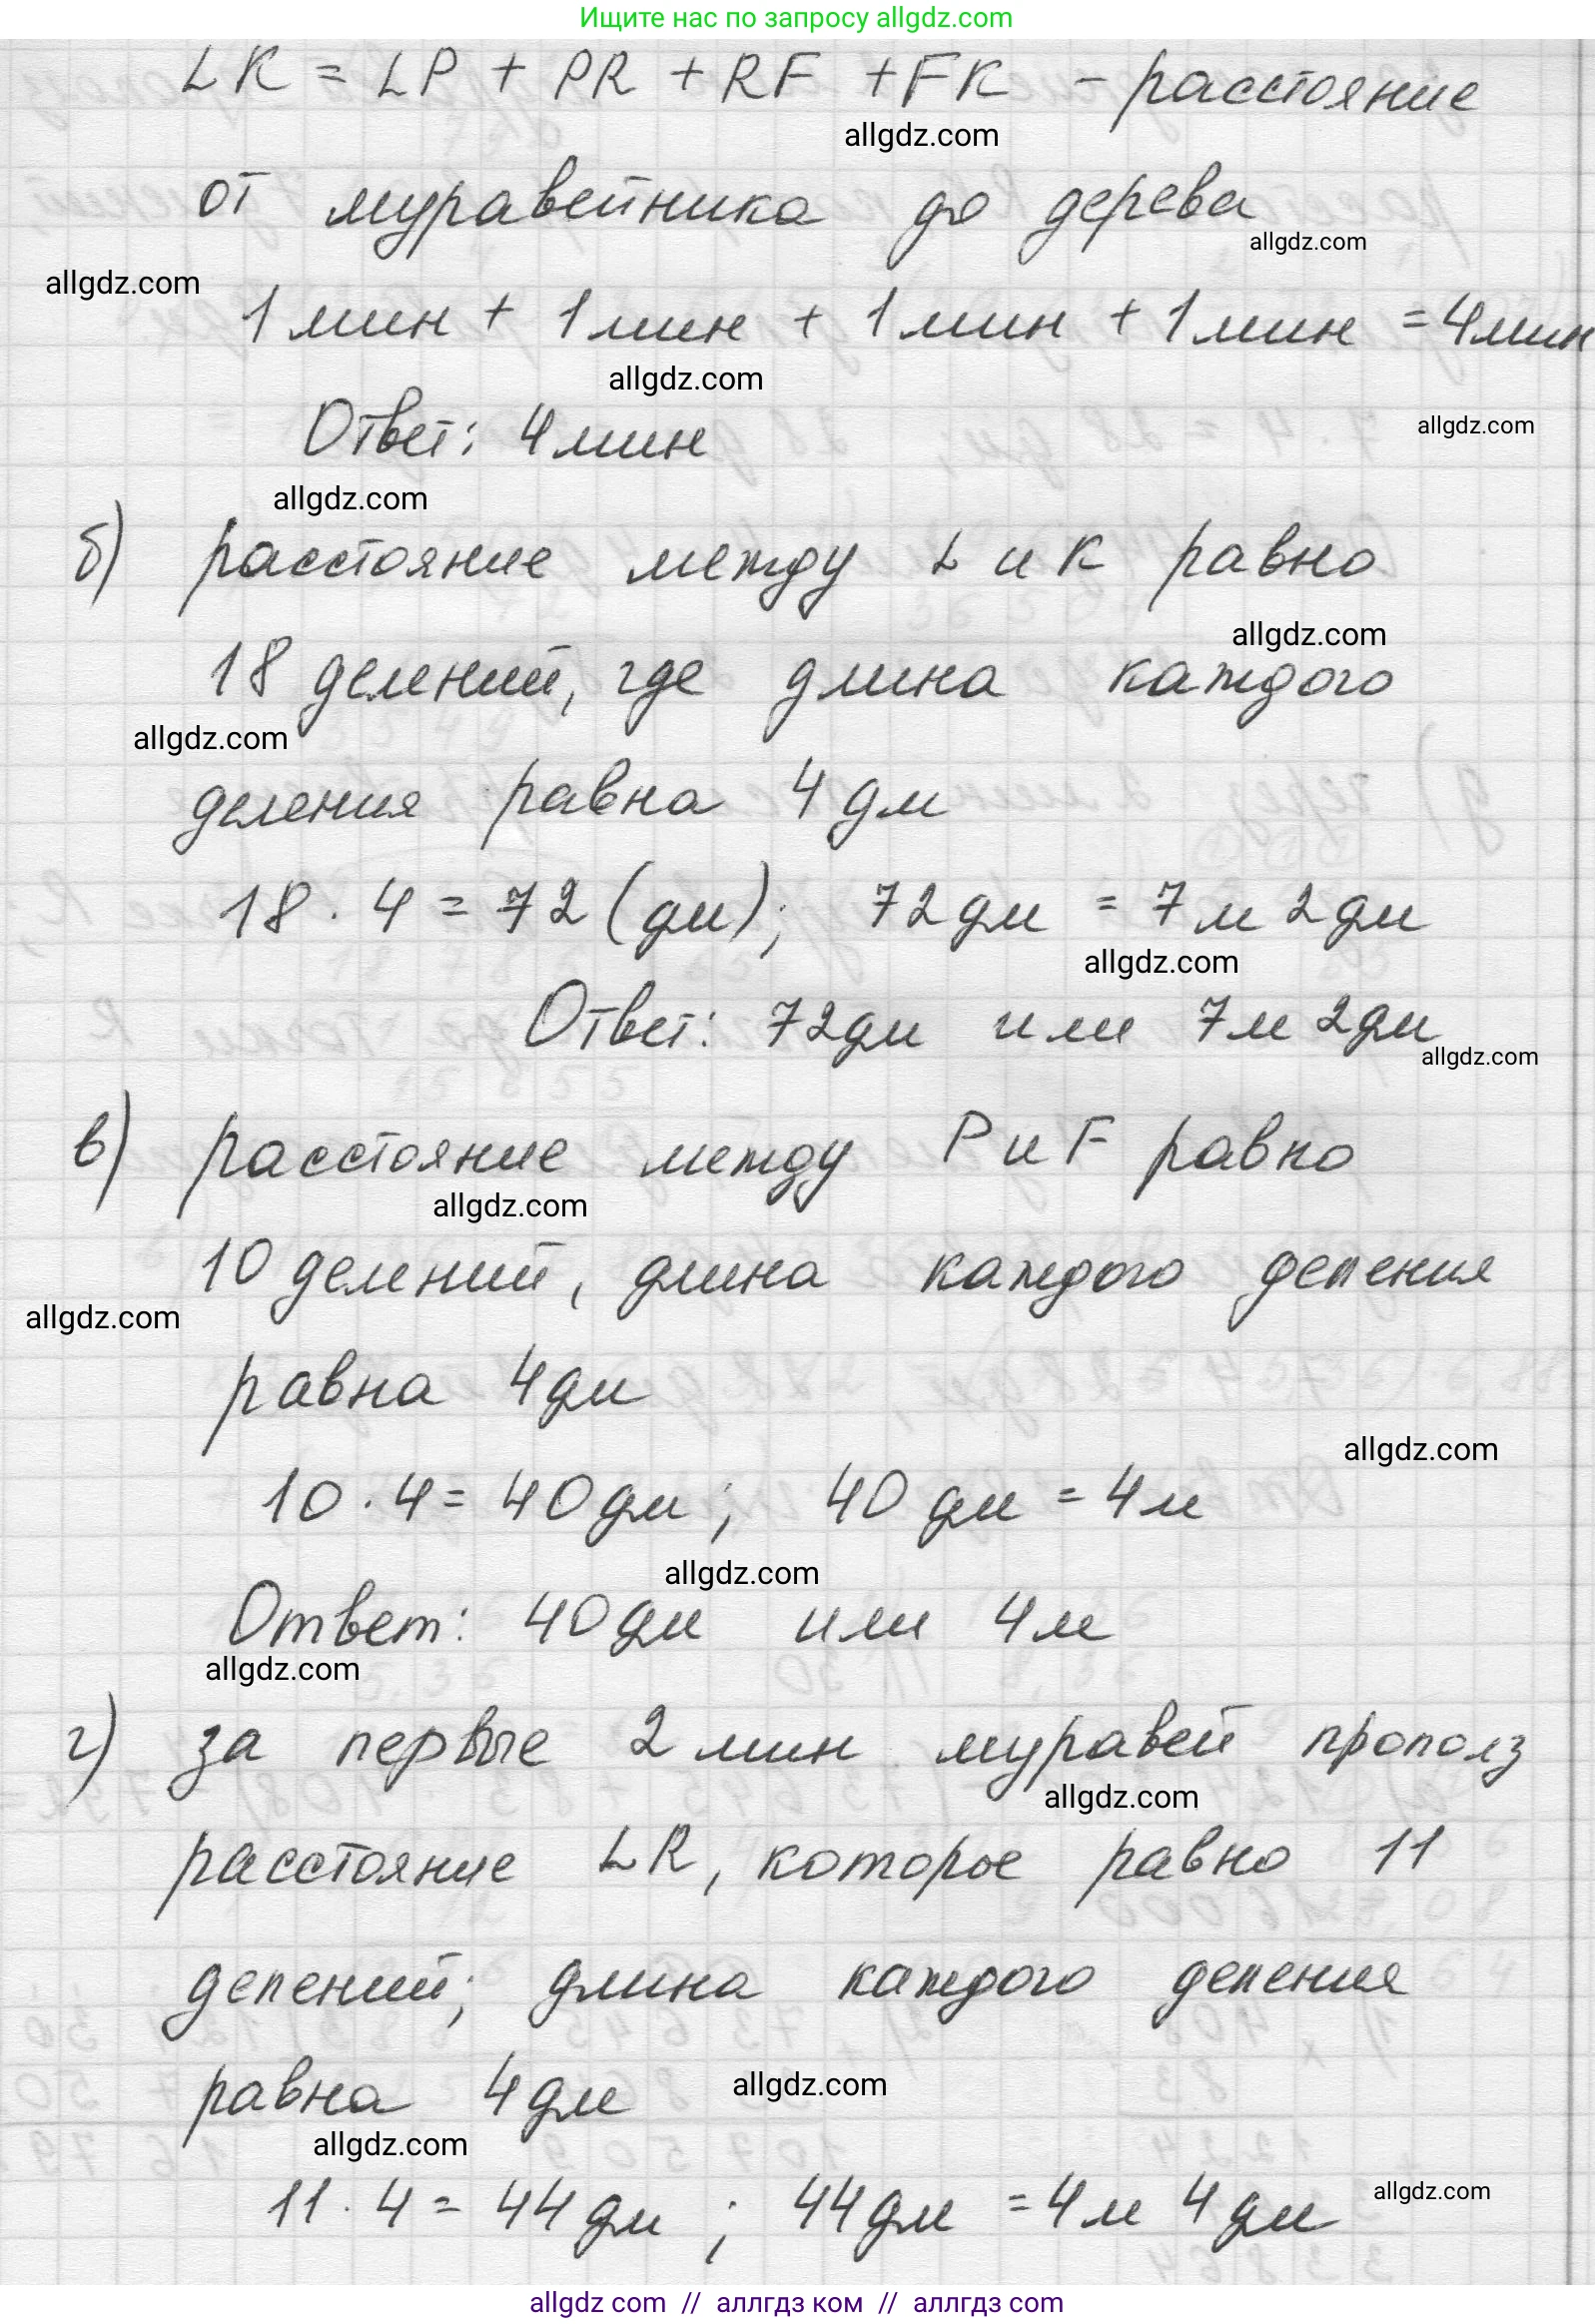 Ищите нас по запросу allgdz.com
LK = LP + PR + RF + FK - расстояние
allgdz.com
от муравейника до дерева
allgdz.com
allgdz.com
1 мин + 1 мин + 1 мин + 1 мин = 4 мин
allgdz.com
Ответ: 4 мин
allgdz.com
allgdz.com
б) расстояние между L и K равно
allgdz.com
18 делений, где длина каждого
allgdz.com
деления равна 4 дм
18 · 4 = 72 (дм); 72 дм = 7 м 2 дм
allgdz.com
Ответ: 72 дм или 7 м 2 дм
allgdz.com
в) расстояние между P и F равно
allgdz.com
10 делений, длина каждого деления
allgdz.com
равна 4 дм
allgdz.com
10 · 4 = 40 дм; 40 дм = 4 м
allgdz.com
Ответ: 40 дм или 4 м
allgdz.com
г) за первые 2 мин муравей прополз
allgdz.com
расстояние LR, которое равно 11
делений; длина каждого деления
равна 4 дм
allgdz.com
allgdz.com
11 · 4 = 44 дм; 44 дм = 4 м 4 дм
allgdz.com
allgdz.com // аллгдз ком // аллгдз com